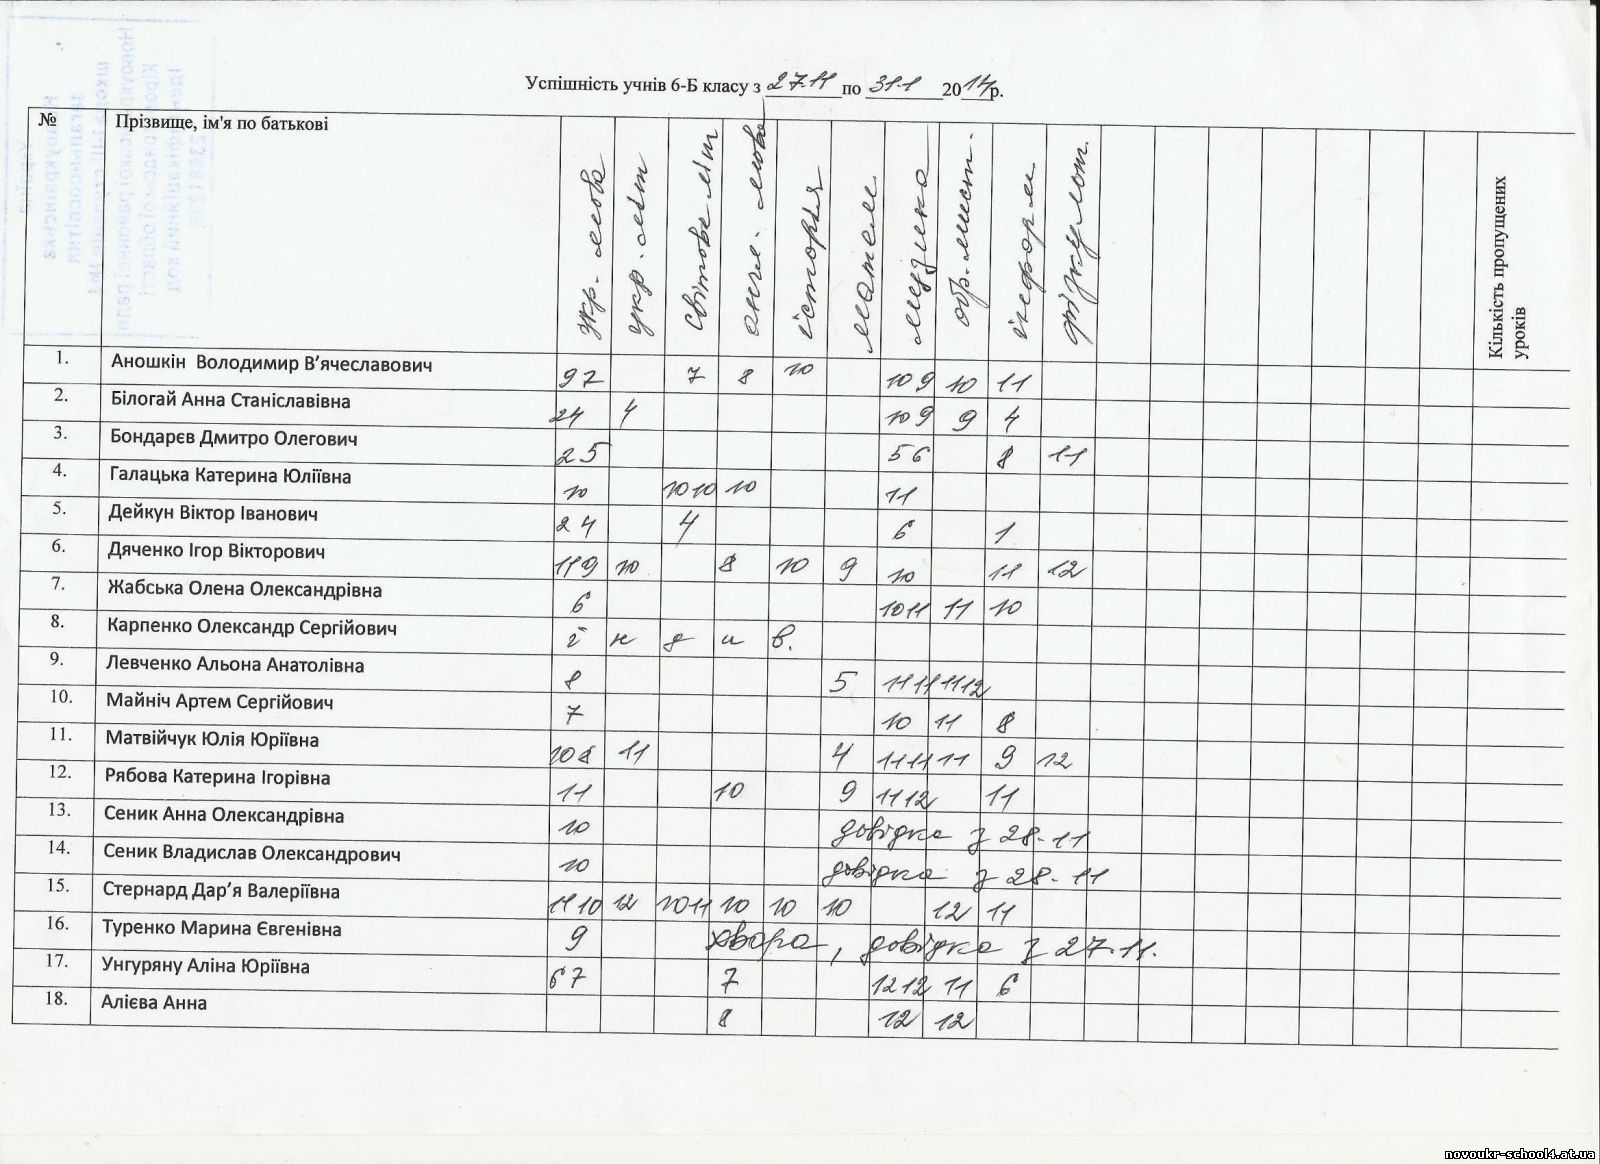 Успішність учнів 6-Б класу з 27.11 по 31.1 2014р.
№ Прізвище, ім'я по батькові укр. мова укр. літ світова літ англ. мова історія матем музика обр. мист. інформ фізкульт. Кількість пропущених уроків
1. Аношкін Володимир В’ячеславович 9 7 7 8 10 10 9 10 11
2. Білогай Анна Станіславівна 2 4 4 10 9 9 4
3. Бондарєв Дмитро Олегович 2 5 5 6 8 11
4. Галацька Катерина Юліївна 10 10 10 10 11
5. Дейкун Віктор Іванович 2 4 4 6 1
6. Дяченко Ігор Вікторович 11 9 10 8 10 9 10 11 12
7. Жабська Олена Олександрівна 6 10 11 11 10
8. Карпенко Олександр Сергійович і н д и в.
9. Левченко Альона Анатолівна 8 5 11 11 11 12
10. Майніч Артем Сергійович 7 10 11 8
11. Матвійчук Юлія Юріївна 10 8 11 4 11 11 11 9 12
12. Рябова Катерина Ігорівна 11 10 9 11 12 11
13. Сеник Анна Олександрівна 10 довідка з 28.11
14. Сеник Владислав Олександрович 10 довідка з 28.11
15. Стернард Дар’я Валеріївна 11 10 12 10 11 10 10 10 12 11
16. Туренко Марина Євгенівна 9 хвора, довідка з 27.11.
17. Унгуряну Аліна Юріївна 6 7 7 12 12 11 6
18. Алієва Анна 8 12 12
novoukr-school4.at.ua